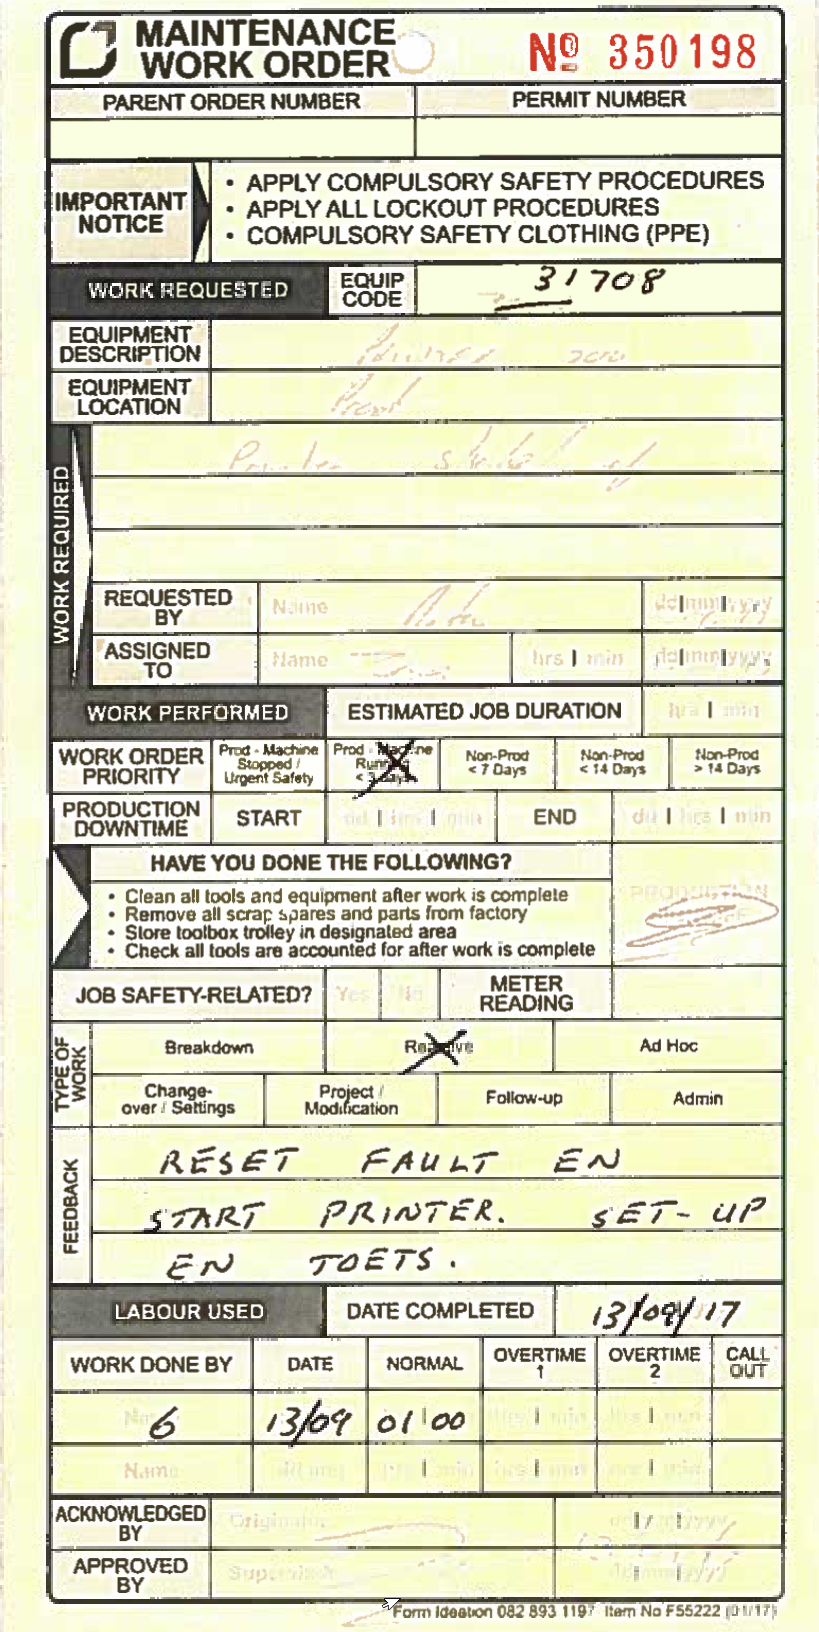 MAINTENANCE
WORK ORDER
Nº 350198
PARENT ORDER NUMBER
PERMIT NUMBER
IMPORTANT
NOTICE
• APPLY COMPULSORY SAFETY PROCEDURES
• APPLY ALL LOCKOUT PROCEDURES
• COMPULSORY SAFETY CLOTHING (PPE)
WORK REQUESTED
EQUIP
CODE
31708
EQUIPMENT
DESCRIPTION
EQUIPMENT
LOCATION
Prod
WORK REQUIRED
Printer
REQUESTED
BY
Name
dd|mm|yyyy
ASSIGNED
TO
Name
hrs | min
dd|mm|yyyy
WORK PERFORMED
ESTIMATED JOB DURATION
hrs | min
WORK ORDER
PRIORITY
Prod - Machine
Stopped /
Urgent Safety
Prod - Machine
Running
< 3 Days
Non-Prod
< 7 Days
Non-Prod
< 14 Days
Non-Prod
> 14 Days
PRODUCTION
DOWNTIME
START
dd | hrs | min
END
dd | hrs | min
HAVE YOU DONE THE FOLLOWING?
• Clean all tools and equipment after work is complete
• Remove all scrap spares and parts from factory
• Store toolbox trolley in designated area
• Check all tools are accounted for after work is complete
PRODUCTION
JOB SAFETY-RELATED?
Yes
No
METER
READING
TYPE OF
WORK
Breakdown
Reactive
Ad Hoc
Change-
over / Settings
Project /
Modification
Follow-up
Admin
FEEDBACK
RESET FAULT EN
START PRINTER. SET-UP
EN TOETS.
LABOUR USED
DATE COMPLETED
13/09/17
WORK DONE BY
DATE
NORMAL
OVERTIME
1
OVERTIME
2
CALL
OUT
Name
6
13/09
01 00
hrs | min
hrs | min
Name
dd|mm
hrs | min
hrs | min
hrs | min
ACKNOWLEDGED
BY
Originator
dd|mm|yyyy
APPROVED
BY
Supervisor
dd|mm|yyyy
Form Ideation 082 893 1197 Item No F55222 (01/17)